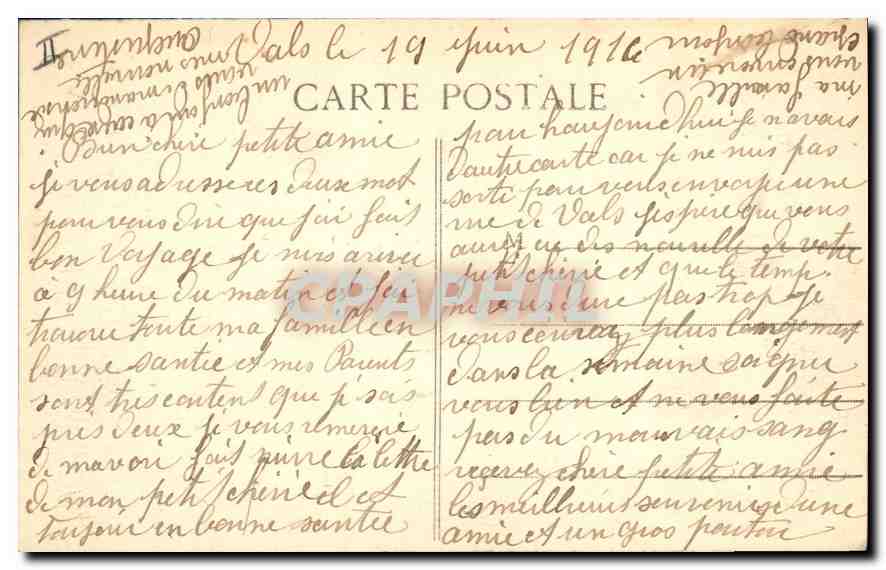 II
Vals le 19 juin 1916
CARTE POSTALE
chère petite amie
je vous adresse ces deux mot
pour vous dire que j'ai fait
bon voyage je suis arivée
à 9 heure du matin et j'ai
trouvé toute ma famille en
bonne santie et mes Parents
sont très content que je sois
près deux je vous remercie
de mavoir fait suivre la lettre
de mon petit chérie il est
toujour en bonne santie
pour haujourdhui je navais
dautre carte car je ne suis pas
sortie pour vous envoyé une
vue de Vals jespère que vous
aurez eu des nouvelle de votre
petit chérie et que le temp
ne vous dure pas trop je
vous écrirez plus longement
dans la semaine soigné
vous bien et ne vous faite
pas du mauvais sang
recevez chère petite amie
les meilleur souvenirs d'une
amie et un gros
ma famille
vous envoie
CPAPHIL